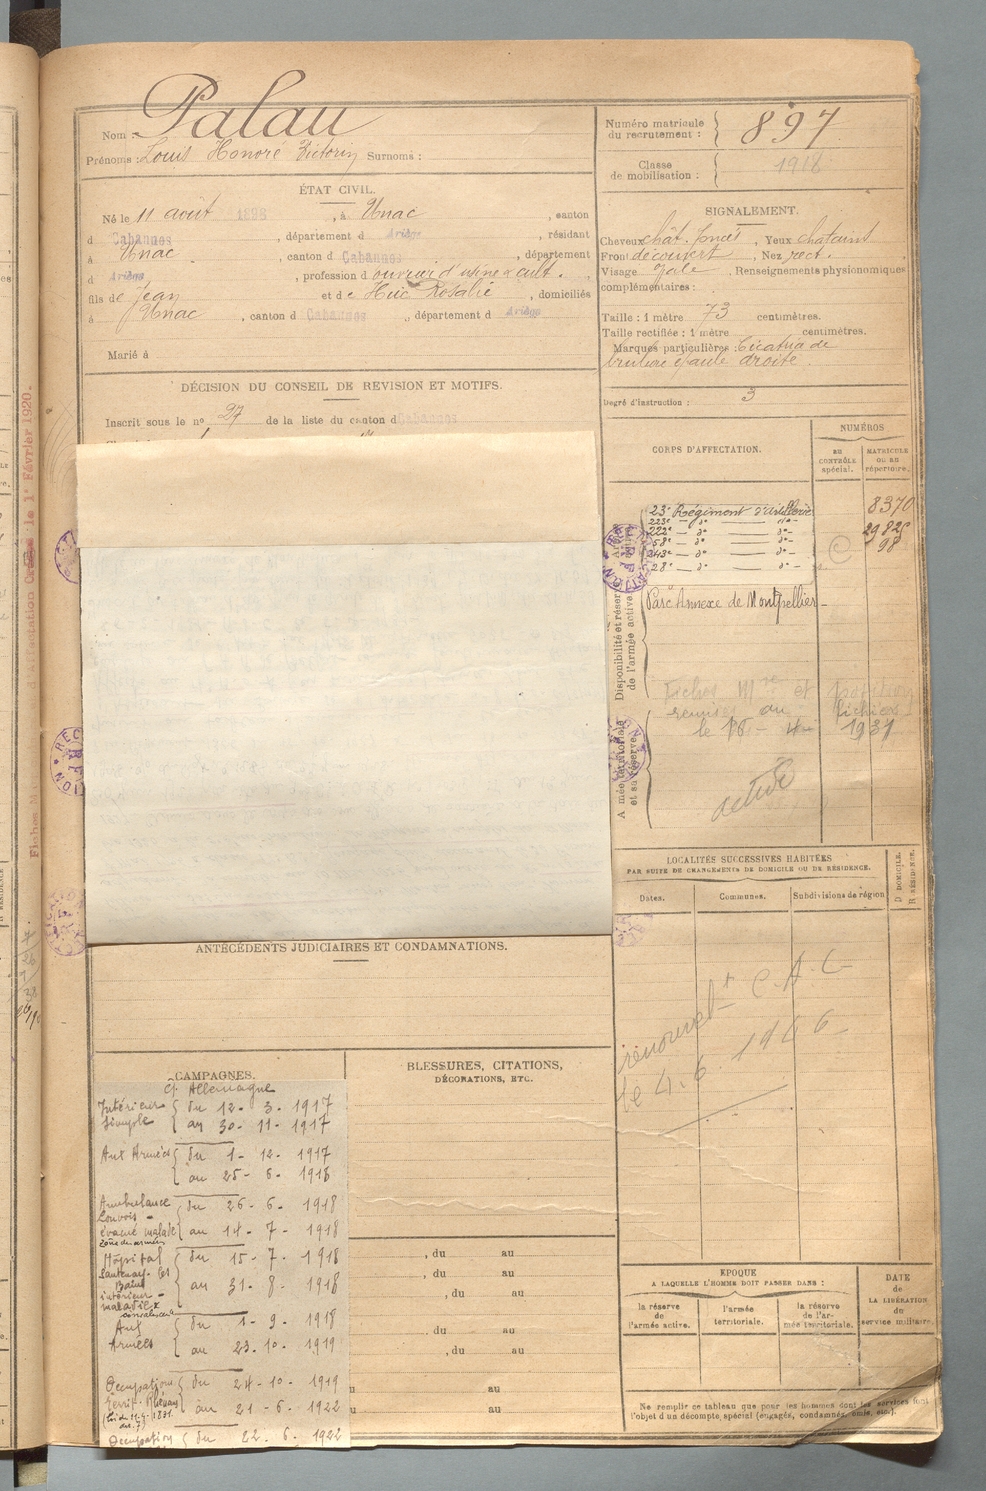 Nom : Palau
Prénoms : Louis Honoré Victorin Surnoms :
ÉTAT CIVIL.
Né le 11 août 1898, à Unac, canton
d Cabannes, département d Ariège, résidant
à Unac, canton d Cabannes, département
d Ariège, profession d'ouvrier d'usine & cult.
fils de Jean et de Huc Rosalie, domiciliés
à Unac, canton d Cabannes, département d Ariège
Marié à
DÉCISION DU CONSEIL DE REVISION ET MOTIFS.
Inscrit sous le n° 27 de la liste du canton d Cabannes
ANTÉCÉDENTS JUDICIAIRES ET CONDAMNATIONS.
CAMPAGNES.
Cf. Allemagne
Intérieur du 12 - 3 - 1917
simple au 30 - 11 - 1917
Aux Armées du 1 - 12 - 1917
au 25 - 6 - 1918
Ambulance du 26 - 6 - 1918
Louvois -
évacué malade au 14 - 7 - 1918
zone des armées
Hôpital du 15 - 7 - 1918
Santenay-les
Bains au 31 - 8 - 1918
intérieur -
maladie &
convalescence
Aux du 1 - 9 - 1918
Armées au 23 - 10 - 1919
Occupation du 24 - 10 - 1919
territ. Rhénans au 21 - 6 - 1922
Occupation du 22 - 6 - 1922
BLESSURES, CITATIONS,
DÉCORATIONS, ETC.
, du au
, du au
, du au
, du au
, du au
au
au
Numéro matricule
du recrutement : 897
Classe
de mobilisation : 1918
SIGNALEMENT.
Cheveux chât. foncés, Yeux châtains
Front découvert, Nez rect.
Visage ovale, Renseignements physionomiques
complémentaires :
Taille : 1 mètre 73 centimètres.
Taille rectifiée : 1 mètre centimètres.
Marques particulières : Cicatrice de
brulure épaule droite.
Degré d'instruction : 3
CORPS D'AFFECTATION.
NUMÉROS
AU
CONTRÔLE
spécial.
MATRICULE
OU AU
répertoire.
Disponibilité et réserve
de l'armée active.
23e Régiment d'artillerie 8370
223e - do - do -
222e - do - do - 29825
58e - do - do - 98
243e - do - do -
28e - do - do -
Parc Annexe de Montpellier -
Fiches Mre et position
remises au fichier
le 16 - 4 - 1937
Armée territoriale
et sa réserve.
active
LOCALITÉS SUCCESSIVES HABITÉES
PAR SUITE DE CHANGEMENTS DE DOMICILE OU DE RÉSIDENCE.
Dates.
Communes.
Subdivisions de région
D DOMICILE.
R RÉSIDENCE.
renouvelt C.A.C
le 4.6.1966
EPOQUE
A LAQUELLE L'HOMME DOIT PASSER DANS :
la réserve
de
l'armée active.
l'armée
territoriale.
la réserve
de l'ar-
mée territoriale.
DATE
de
LA LIBÉRATION
du
service militaire.
Ne remplir ce tableau que pour les hommes dont les services font
l'objet d'un décompte spécial (engagés, condamnés, omis, etc.).